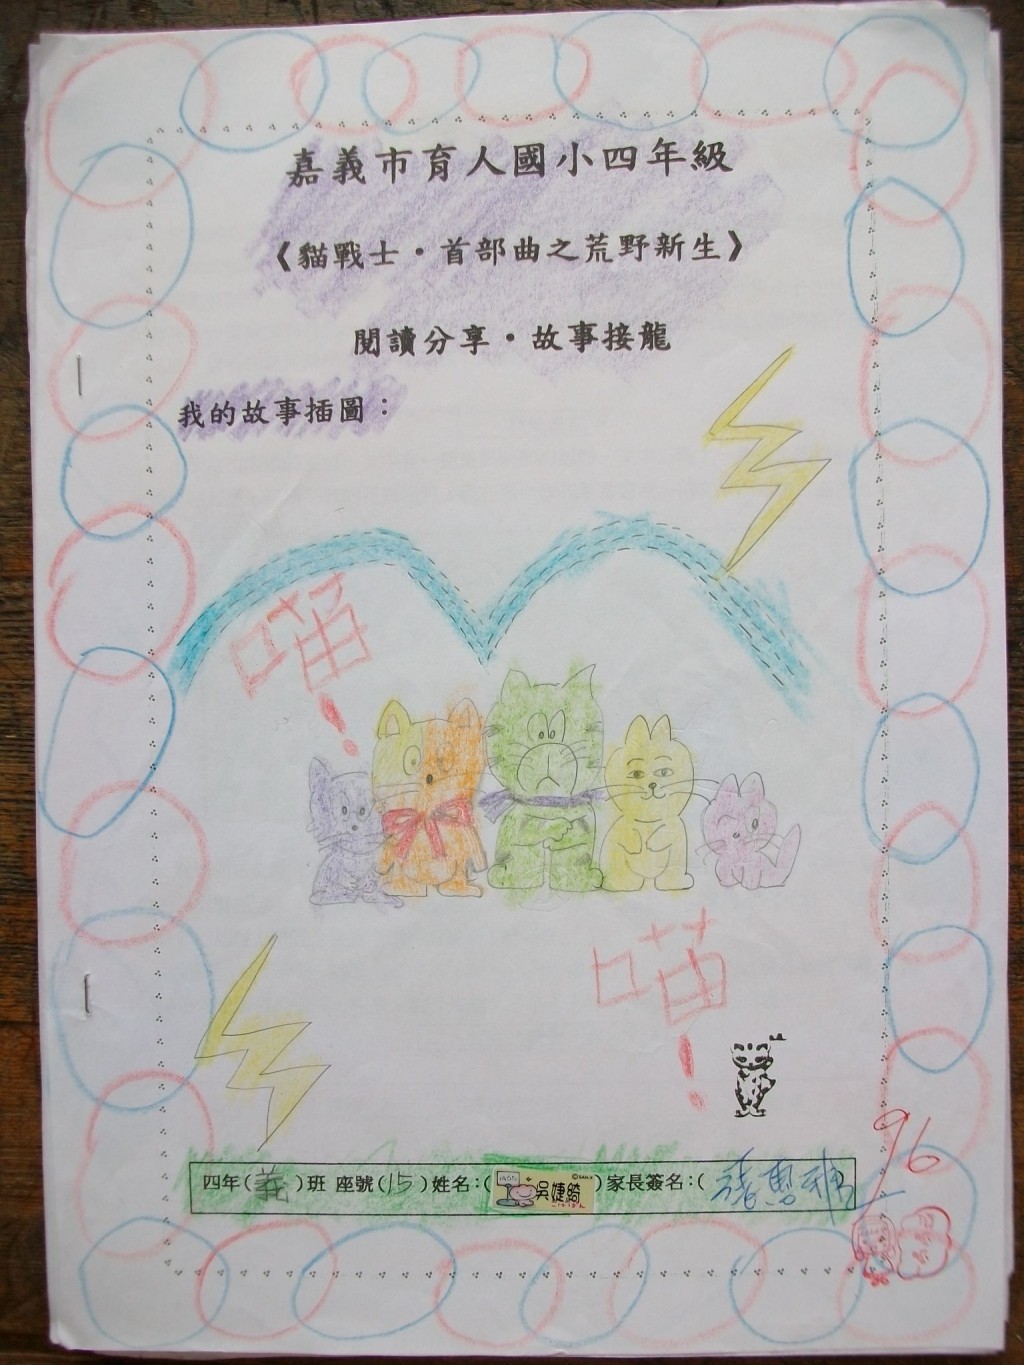 嘉義市育人國小四年級
《貓戰士‧首部曲之荒野新生》
閱讀分享‧故事接龍
我的故事插圖：
喵！
喵！
96
四年(義)班 座號(15)姓名：(吳婕綺)家長簽名：(